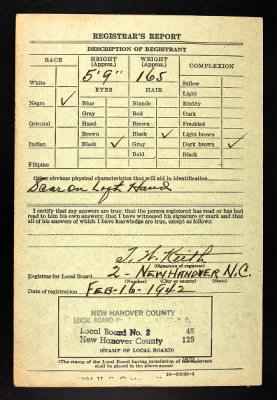 REGISTRAR'S REPORT
DESCRIPTION OF REGISTRANT
RACE
HEIGHT (Approx.)
WEIGHT (Approx.)
COMPLEXION
White
5'9"
165
Sallow
EYES
HAIR
Light
Negro ✓
Blue
Blonde
Ruddy
Gray
Red
Dark
Oriental
Hazel
Brown
Freckled
Brown
Black ✓
Light brown
Indian
Black ✓
Gray
Dark brown ✓
Bald
Black
Filipino
Other obvious physical characteristics that will aid in identification
Scar on Left Hand
I certify that my answers are true; that the person registered has read or has had
read to him his own answers; that I have witnessed his signature or mark and that
all of his answers of which I have knowledge are true, except as follows:
Keith
(Signature of registrar)
Registrar for Local Board 2 - NEW HANOVER N.C.
(Number) (City or county) (State)
Date of registration FEB-16-1942
NEW HANOVER COUNTY
LOCAL BOARD
Local Board No. 2 46
New Hanover County 129
(STAMP OF LOCAL BOARD)
(The stamp of the Local Board having jurisdiction of the registrant
shall be placed in the above space)